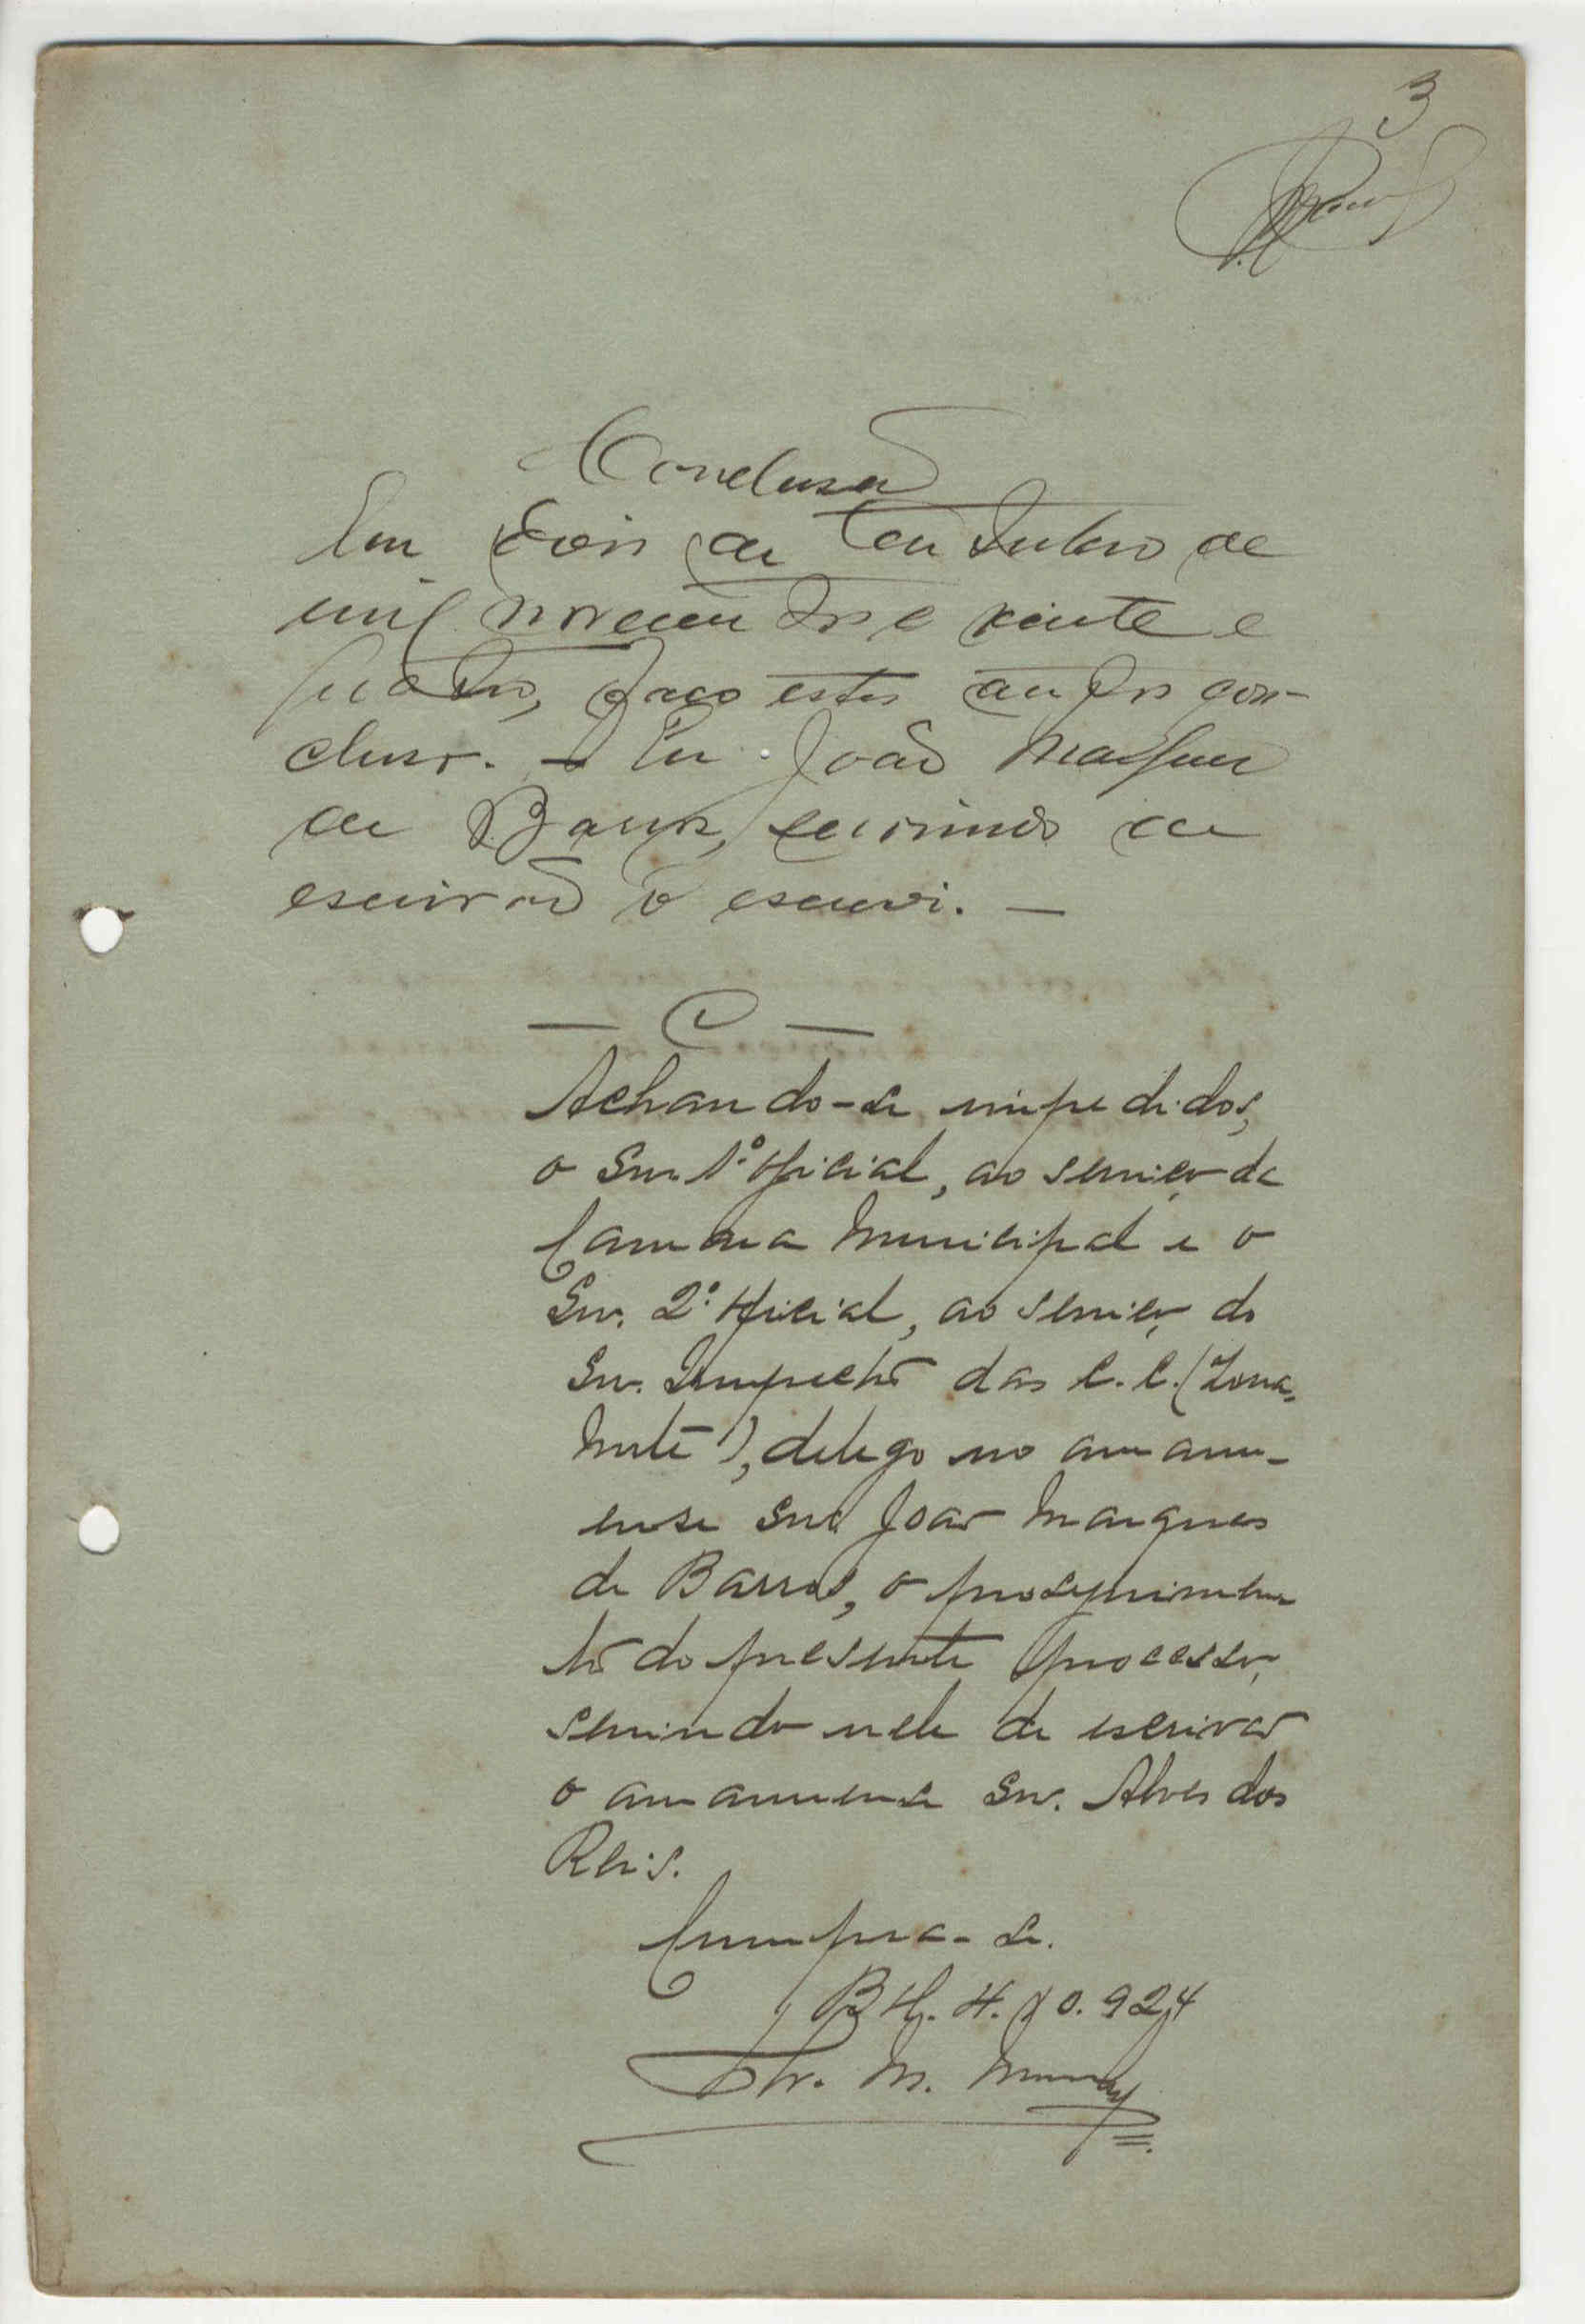 3
Conclusão
Em dois de Outubro de
mil novecentos e vinte e
quatro, faço estes autos con-
clusos. — Eu João Marques
de Barros, servindo de
escrivão o escrevi. —
— C —
Achando-se impedidos,
o Snr. 1.º Oficial, ao serviço da
Camara Municipal e o
Snr. 2.º Oficial, ao serviço do
Snr. Inspector das C. C. (Zona-
Norte), delego no amanu-
ense Snr. João Marques
de Barros, o prosseguimen
to do presente processo,
servindo nele de escrivão
o amanuense Snr. Alves dos
Reis.
Cumpra-se.
4. 10. 924